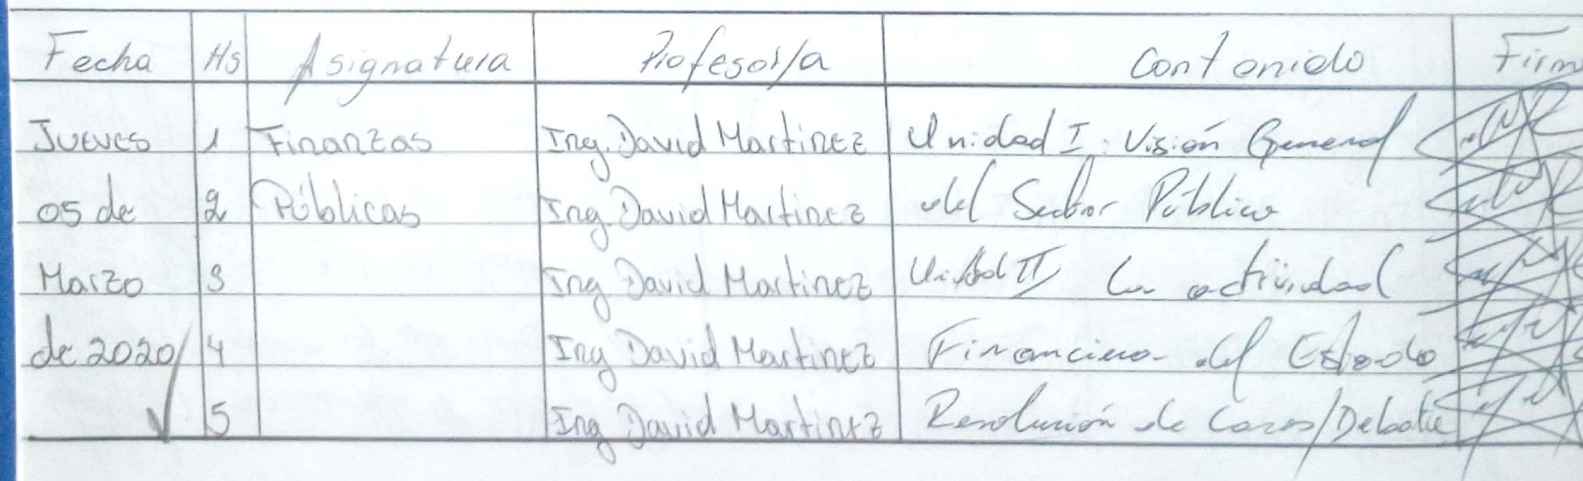 Fecha Hs Asignatura Profesor/a Contenido Firm
Jueves 1 Finanzas Ing. David Martinez Unidad I: Visión General
05 de 2 Públicas Ing. David Martinez del Sector Público
Marzo 3 Ing David Martinez Unidad II La actividad
de 2020 4 Ing David Martinez Financiera del Estado
5 Ing David Martinez Resolución de Casos/Debate